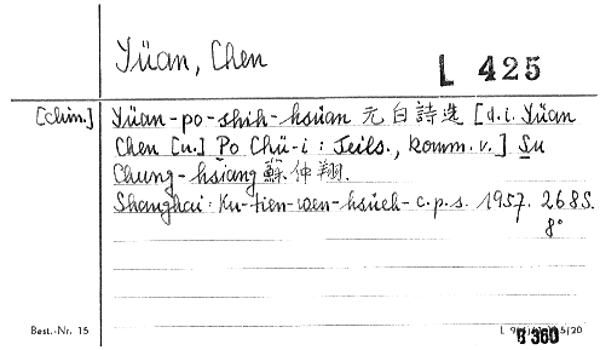 Yüan, Chen
L 425
[chin.] Yüan-po-shih-hsüan 元白詩选 [d.i. Yüan
Chen [u.] Po Chü-i : Teils., komm. v.] Su
Chung-hsiang 蘇仲翔.
Shanghai: Ku-tien-wen-hsüeh-c.p.s. 1957. 268 S.
8°
Best.-Nr. 15
B 360